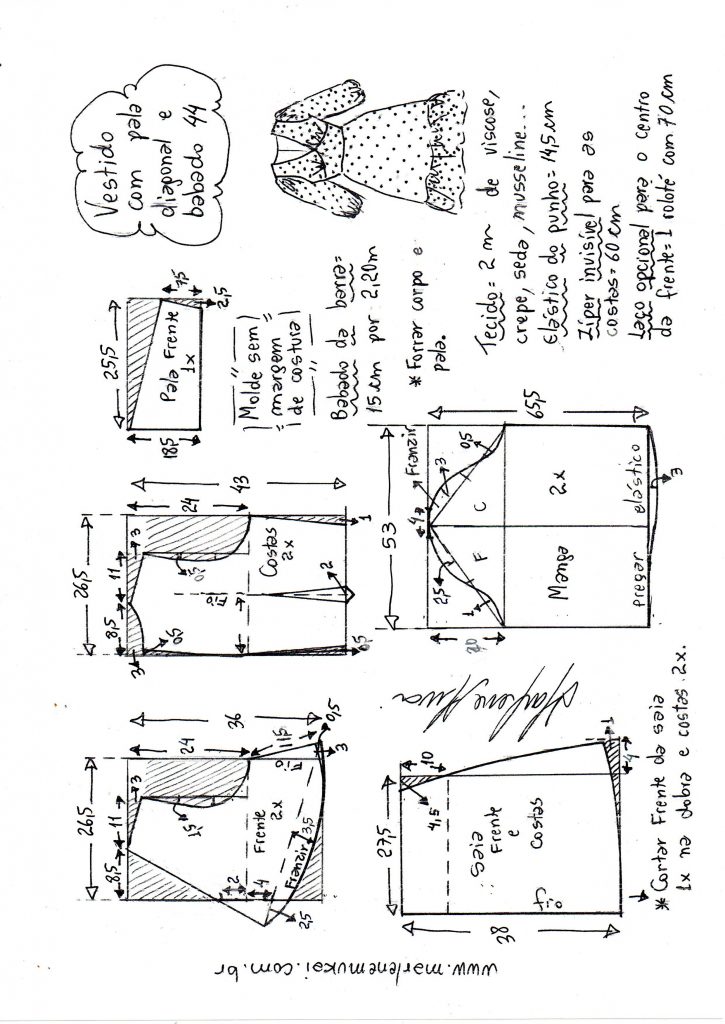 www.marlenemukai.com.br
26,5
8,5
11
3
24
36
1,5
Frente
2x
Franzir
3,5
2
4
2,5
11,5
Fio
0,5
3
26,5
8,5
11
3
24
43
3
0,5
0,5
Costas
2x
Fio
2
0,5
1
25,5
18,5
Pala Frente
1x
7,5
2,5
Vestido
com pala
diagonal e
babado 44
Molde sem
margem
de costura
Babado da barra=
15 cm por 2,20m
* Forrar corpo e
pala.
27,5
38
4,5
10
Saia
Frente
e
Costas
fio
1
4
* Cortar Frente da saia
1x na dobra e costas 2x.
Marlene Mukai
53
20
65,5
Franzir
4
2,5
1
3
0,5
F
C
Manga
2x
pregar elástico
3
Tecido= 2 m de viscose,
crepe, seda, musseline...
Elástico do punho= 14,5 cm
Zíper invisível para as
costas= 60 cm
Laço opcional para o centro
da frente= 1 rolotê com 70 cm